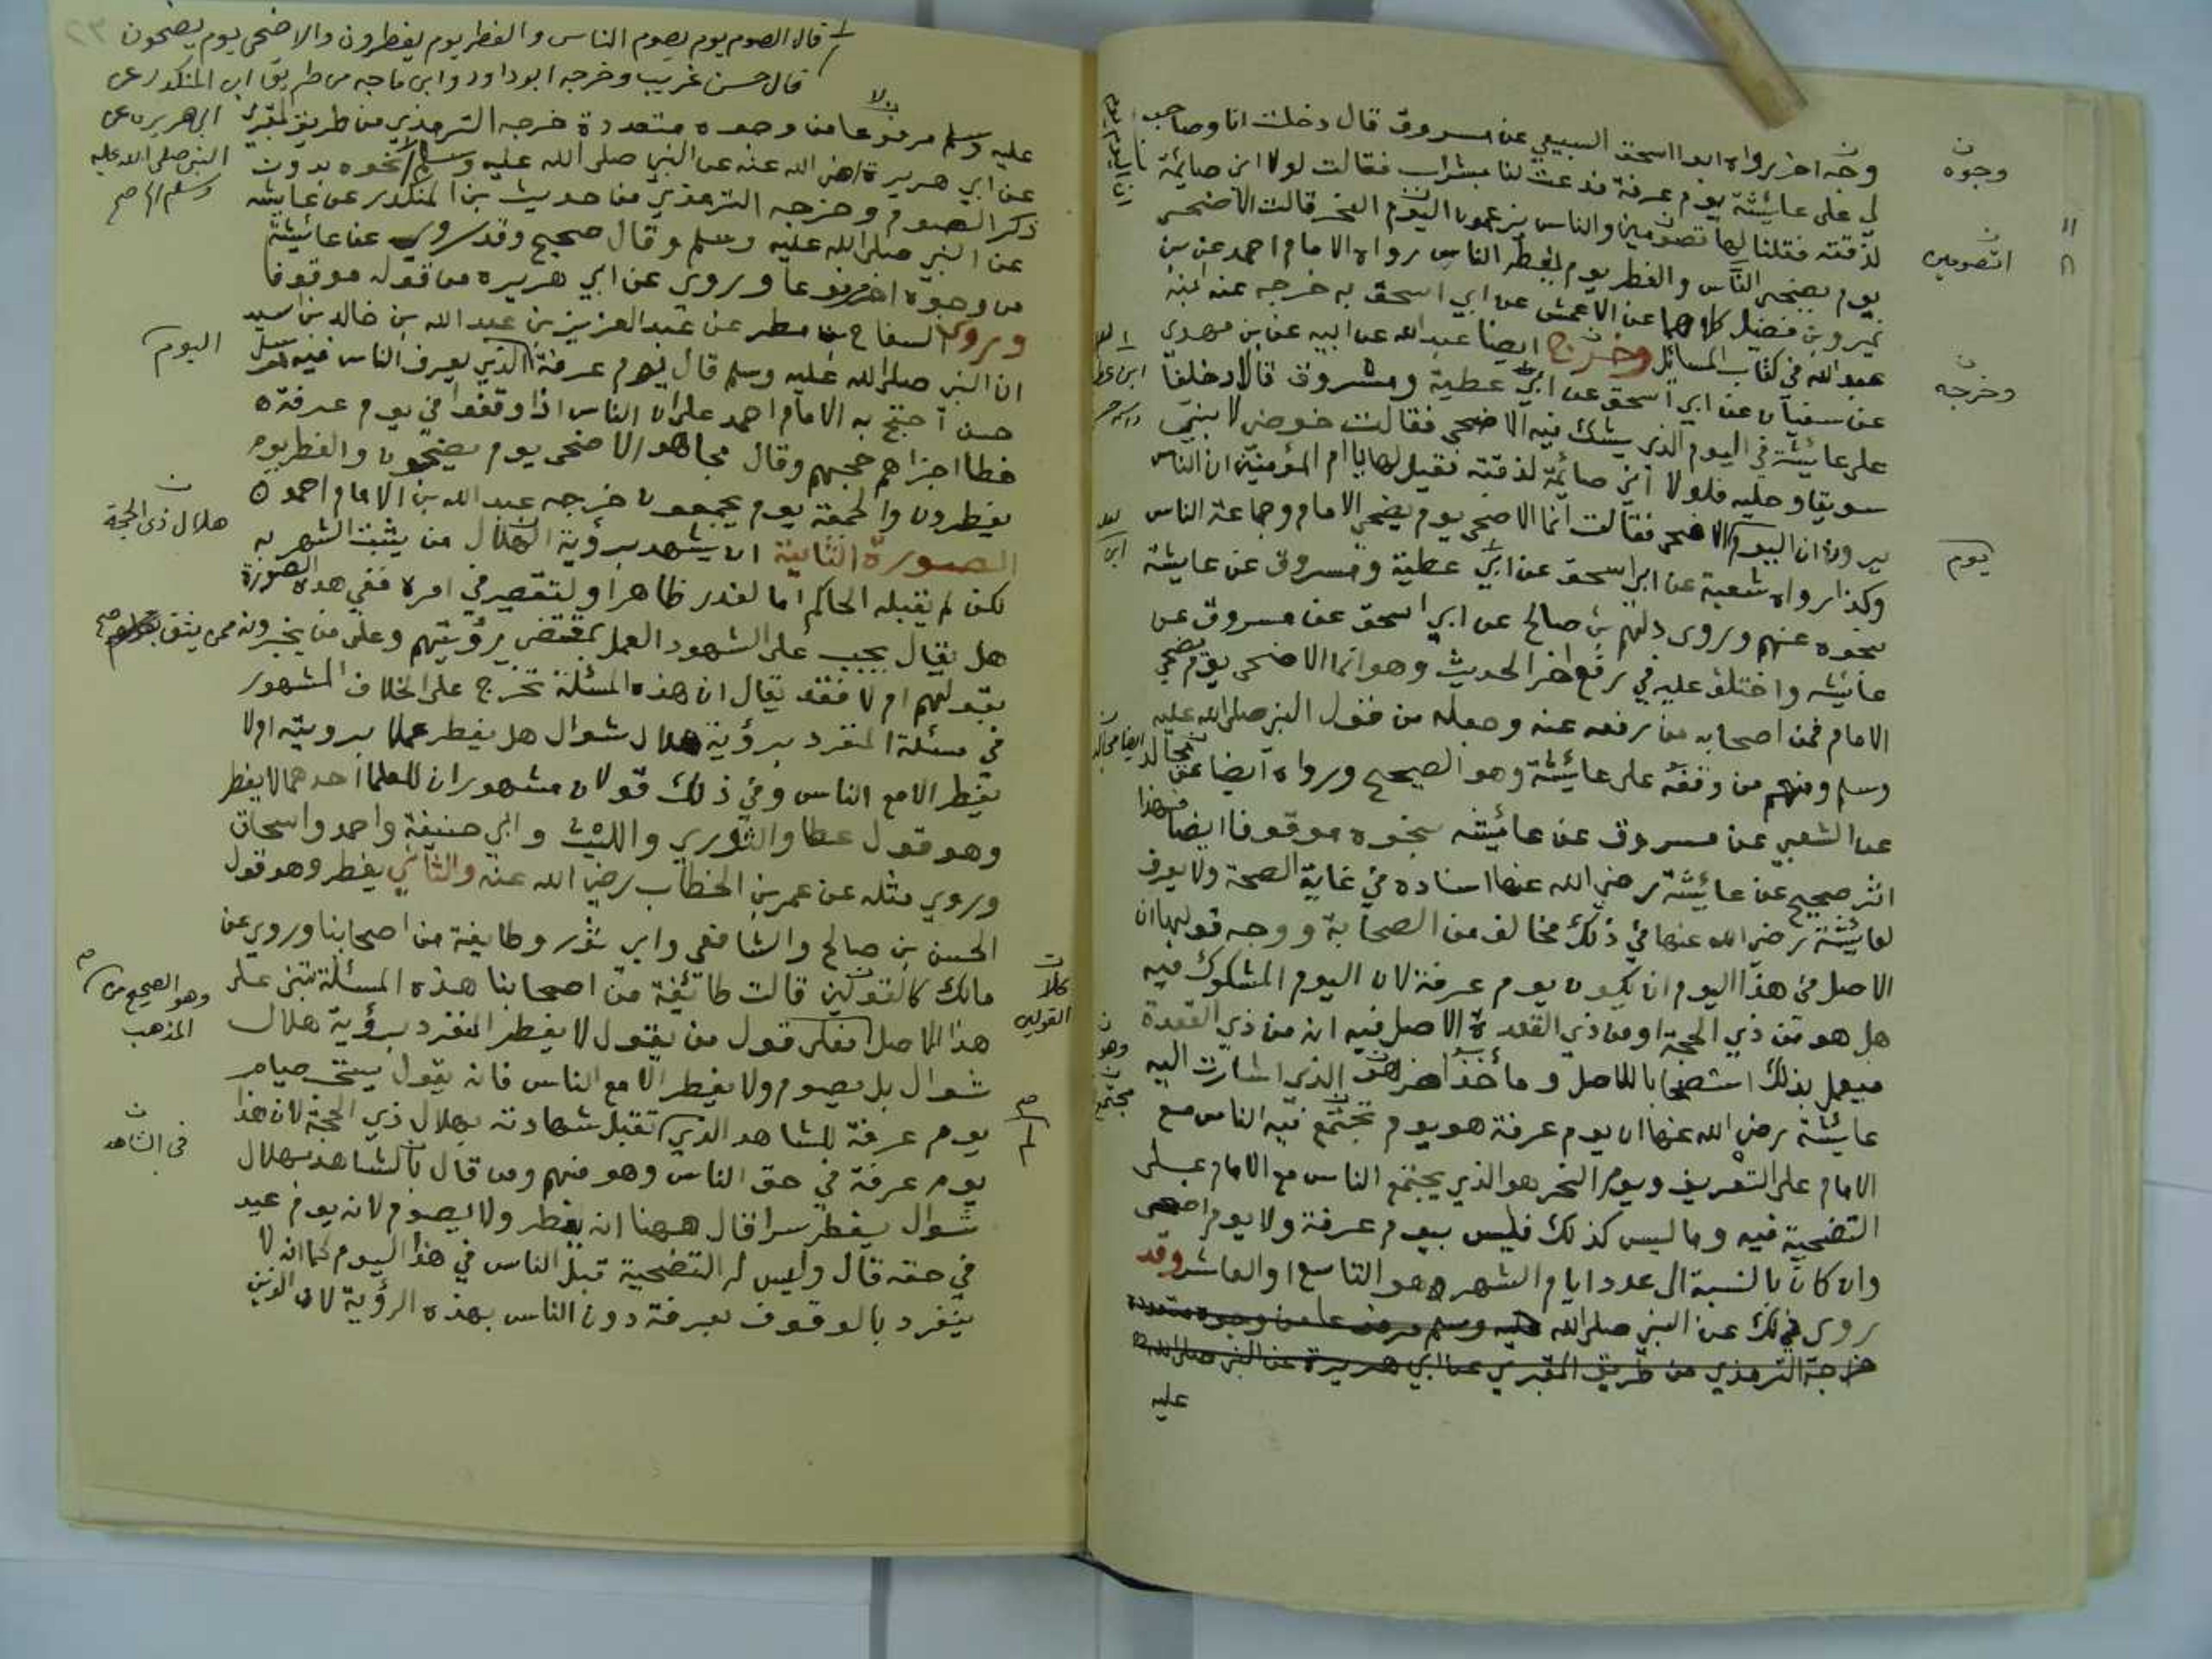 وجه اخر رواه ابو اسحق السبيعي عن مسروق قال دخلت انا وصاحب
لي على عائشة يوم عرفة فدعت لنا بشراب فقالت لولا اني صائمة
لذقته فقلنا لها تصومين والناس يزعمون اليوم النحر قالت الاضحى
يوم يضحي الناس والفطر يوم يفطر الناس رواه الامام احمد عن بن
نمير وبن فضيل كلاهما عن الاعمش عن ابي اسحق به خرجه عنه ابنه
عبد الله في كتاب المسائل وخرج ايضا عبد الله عن ابيه عن بن مهدي
عن سفيان عن ابي اسحق عن ابي عطية ومسروق قالا دخلنا
على عائشة في اليوم الذي يشك فيه الاضحى فقالت خوضي لابني
سويقا وحليه فلولا اني صائمة لذقته فقيل لها يا ام المؤمنين ان الناس
يرون ان اليوم الاضحى فقالت انما الاضحى يوم يضحي الامام وجماعة الناس
وكذا رواه شعبة عن ابي اسحق عن ابي عطية ومسروق عن عايشة
بنحوه عنهم وروى دلهم بن صالح عن ابي اسحق عن مسروق عن
عائشه واختلف عليه في رفع اخر الحديث وهو انما الاضحى يوم يضحي
الامام فمن اصحابه من رفعه عنه وجعله من قول النبي صلى الله عليه
وسلم ومنهم من وقفه على عائشة وهو الصحيح ورواه ايضا عن مجالد
عن الشعبي عن مسروق عن عائشه بنحوه موقوفا ايضا فهذا
اثر صحيح عن عائشة رضي الله عنها اسناده في غاية الصحة ولا يعرف
لعائشة رضي الله عنها في ذلك مخالف من الصحابة ووجه قولها ان
الاصل في هذا اليوم ان يكون يوم عرفة لان اليوم المشكوك فيه
هل هو من ذي الحجة او من ذي القعدة الاصل فيه انه من ذي القعدة
فيعمل بذلك استصحابا للاصل وماخذ اخر الذي اشارت اليه
عائشة رضي الله عنها ان يوم عرفة هو يوم تجتمع فيه الناس مع
الامام على التعريف ويوم النحر هو الذي يجتمع الناس مع الامام على
التضحية فيه وما ليس كذلك فليس بيوم عرفة ولا يوم اضحى
وان كان بالنسبة الى عدد ايام الشهر هو التاسع او العاشر وقد
روى في ذلك عن النبي صلى الله عليه وسلم مرفوعا من وجوه متعددة
خرجه الترمذي من طريق المقبري عن ابي هريرة عن النبي صلى الله
عليه
وجوه
اتصومين
وخرجه
يوم
قال الصوم يوم يصوم الناس والفطر يوم يفطرون والاضحى يوم يضحون
قال حسن غريب وخرجه ابو داود وابن ماجه من طريق ابن المنكدر عن
ابي هريره عن
النبي صلى الله عليه
وسلم
عليه وسلم مرفوعا من وجوه متعددة خرجه الترمذي من طريق المقبري
عن ابي هريرة رضي الله عنه عن النبي صلى الله عليه وسلم نحوه بدون
ذكر الصوم وخرجه الترمذي من حديث بن المنكدر عن عايشه
عن النبي صلى الله عليه وسلم وقال صحيح وقد روي عن عائشة
من وجوه اخر مرفوعا وروى عن ابي هريره من قوله موقوفا
وروى السفاح بن مطر عن عبد العزيز بن عبد الله بن خالد بن اسيد
ان النبي صلى الله عليه وسلم قال يوم عرفة الذي يعرف الناس فيه مرسل
حسن احتج به الامام احمد على ان الناس اذا وقفوا في يوم عرفة
خطا اجزاهم حجهم وقال مجاهد الاضحى يوم يضحون والفطر يوم
يفطرون والجمعة يوم يجمعون خرجه عبد الله بن الامام احمد
الصورة الثانية ان يشهد برؤية الهلال من يثبت الشهر به
لكن لم يقبله الحاكم اما لعذر ظاهر او لتقصير في امره ففي هذه الصورة
هل يقال يجب على الشهود العمل بمقتضى رؤيتهم وعلى من يخبرونه ممن يثق
بقولهم ام لا فقد يقال ان هذه المسئلة تخرج على الخلاف المشهور
في مسئلة المنفرد برؤية هلال شوال هل يفطر عملا برويته او لا
يفطر الا مع الناس وفي ذلك قولان مشهوران للعلما احدهما لا يفطر
وهو قول عطا والثوري والليث وابي حنيفة واحمد واسحاق
وروي مثله عن عمر بن الخطاب رضي الله عنه والثاني يفطر وهو قول
الحسن بن صالح والشافعي وابي ثور وطايفة من اصحابنا وروي عن
مالك كالقولين قالت طائفة من اصحابنا هذه المسئلة تبنى على
هذا الاصل فعلى قول من يقول لا يفطر المنفرد برؤية هلال
شوال بل يصوم ولا يفطر الا مع الناس فانه يقول يستحب صيام
يوم عرفة للشاهد الذي تقبل شهادته بهلال ذي الحجة لان هذا
يوم عرفة في حق الناس وهو منهم ومن قال بالشاهد بهلال
شوال يفطر سرا قال ههنا انه يفطر ولا يصوم لانه يوم عيد
في حقه قال وليس له التضحية قبل الناس في هذا اليوم كما انه لا
ينفرد بالوقوف بعرفة دون الناس بهذه الرؤية لان الذين
اليوم
هلال ذي الحجة
وهو الصحيح من
المذهب
كلا
القولين
لم
في الشاهد